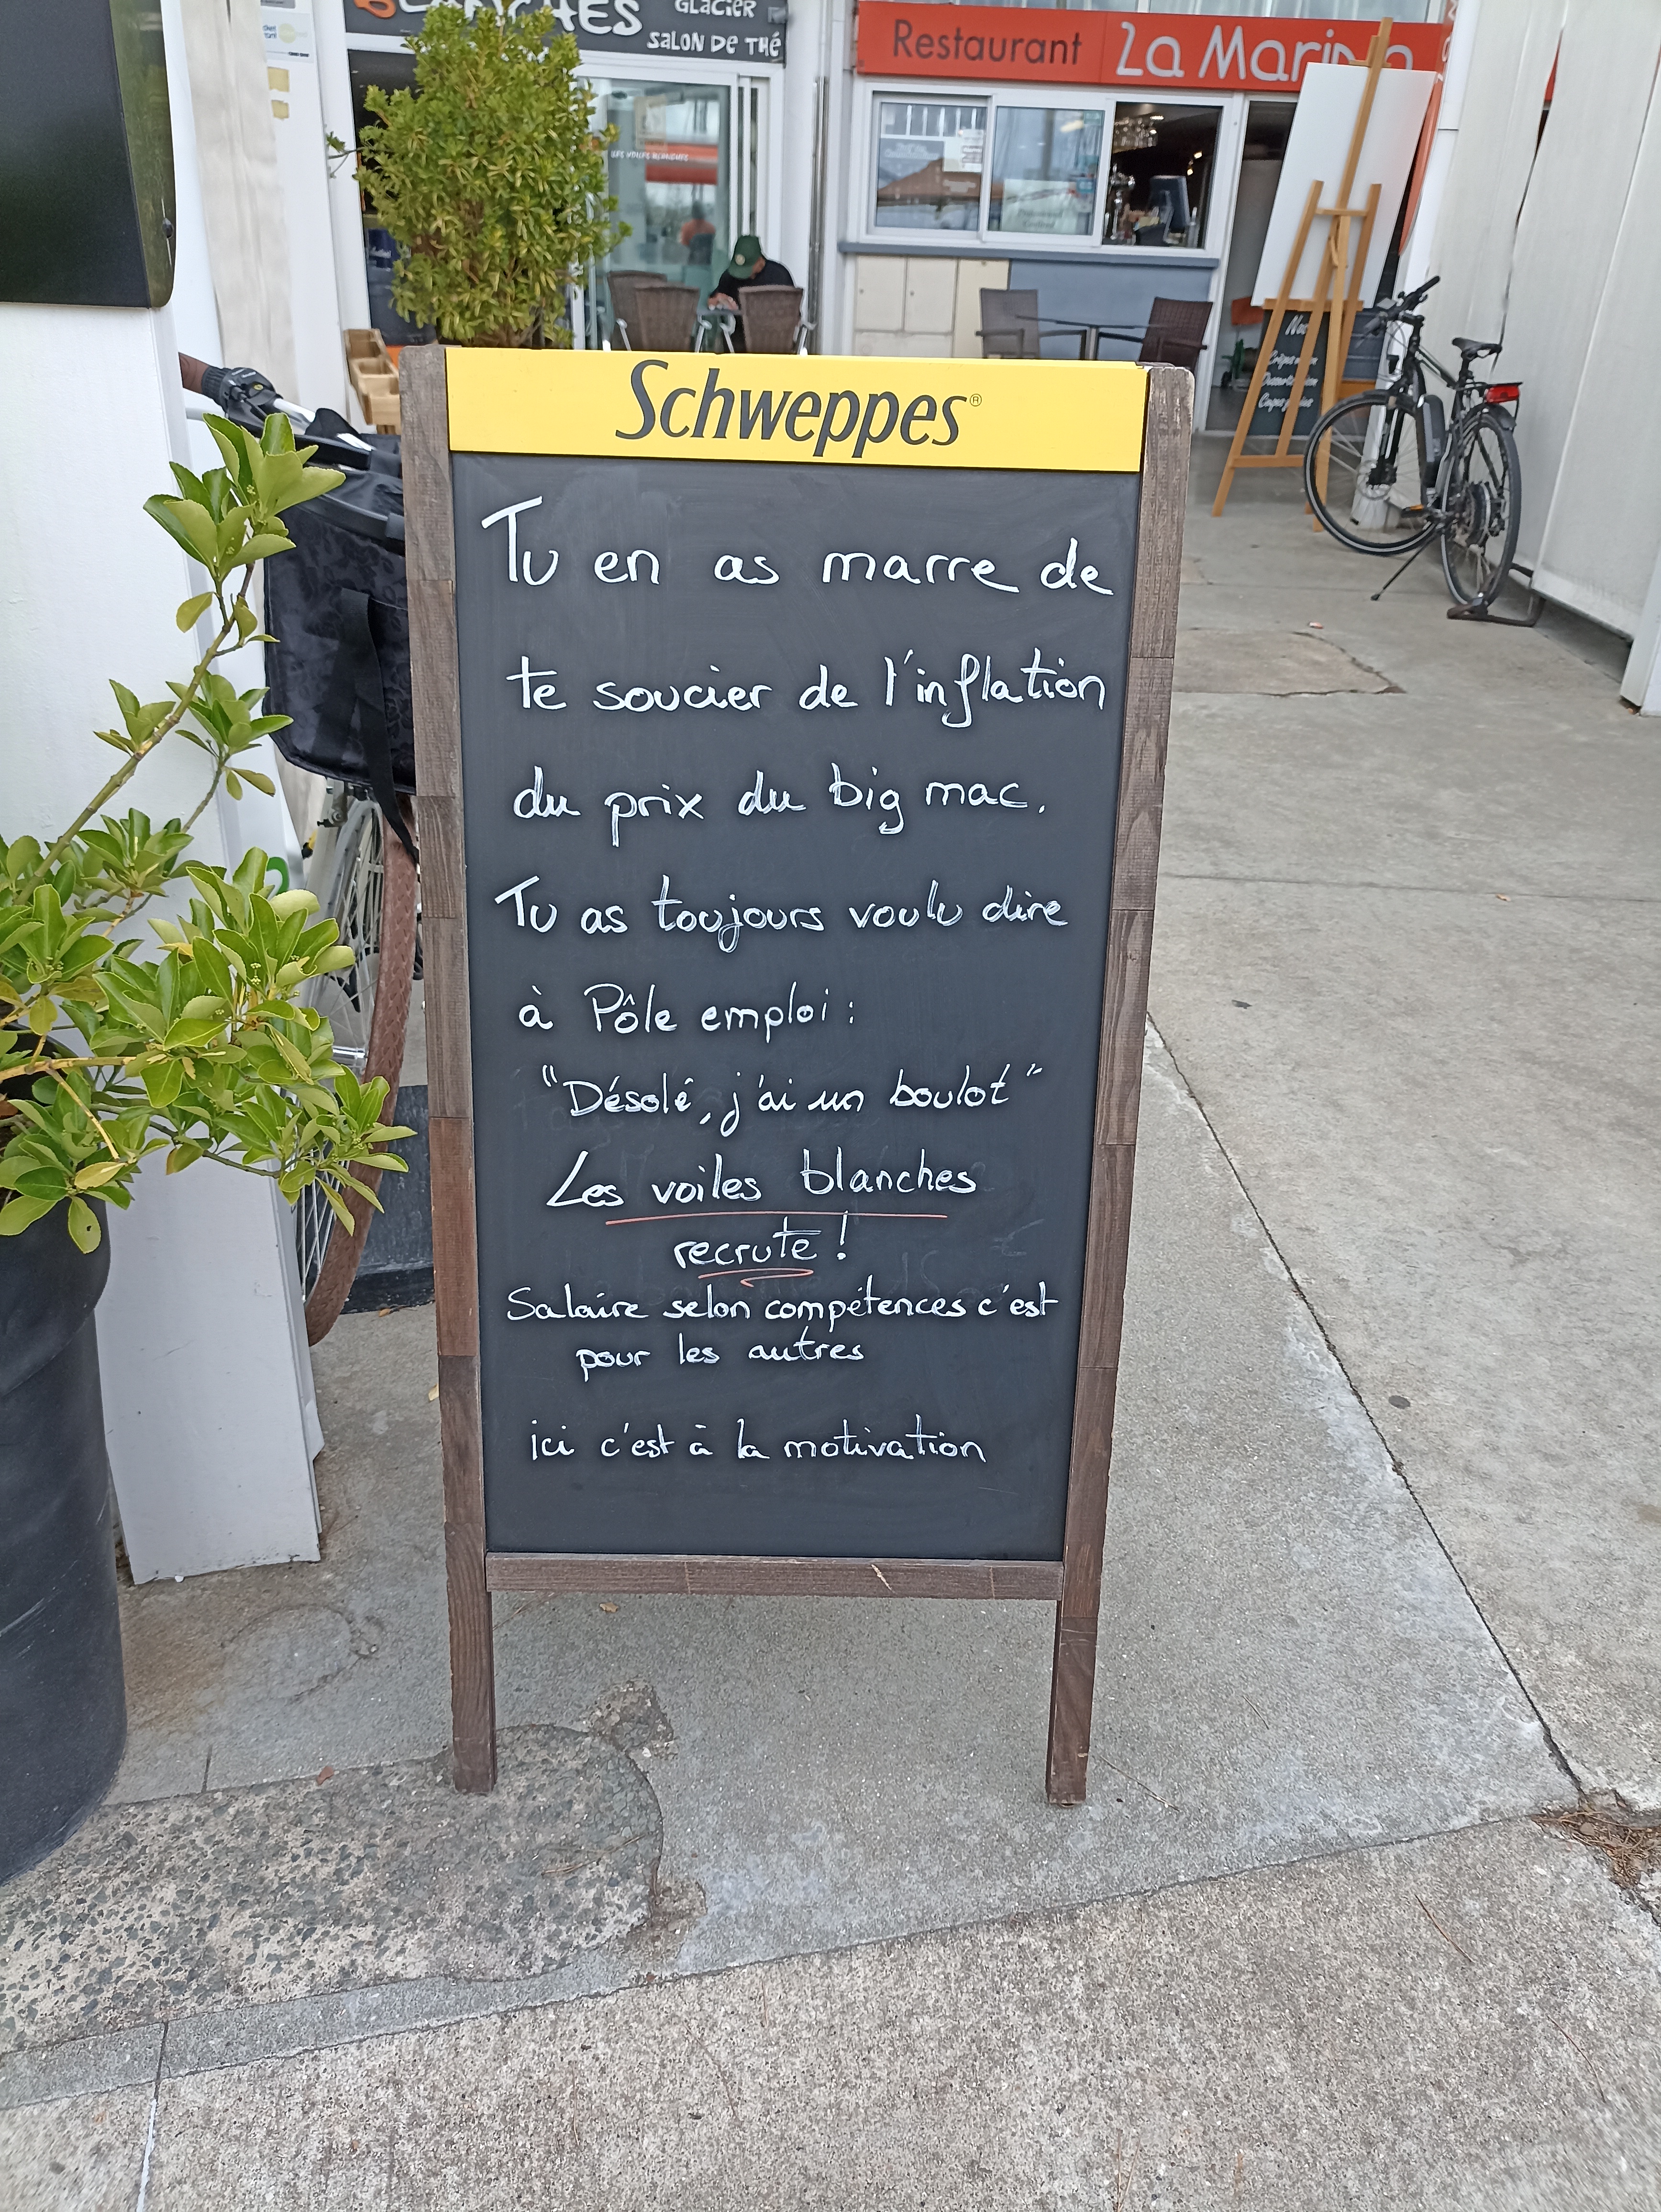 GLACIER
SALON DE THÉ
Restaurant La
LES VOILES BLANCHES
Schweppes®
Tu en as marre de
te soucier de l'inflation
du prix du big mac.
Tu as toujours voulu dire
à Pôle emploi :
"Désolé, j'ai un boulot"
Les voiles blanches
recrute !
Salaire selon compétences c'est
pour les autres
ici c'est à la motivation